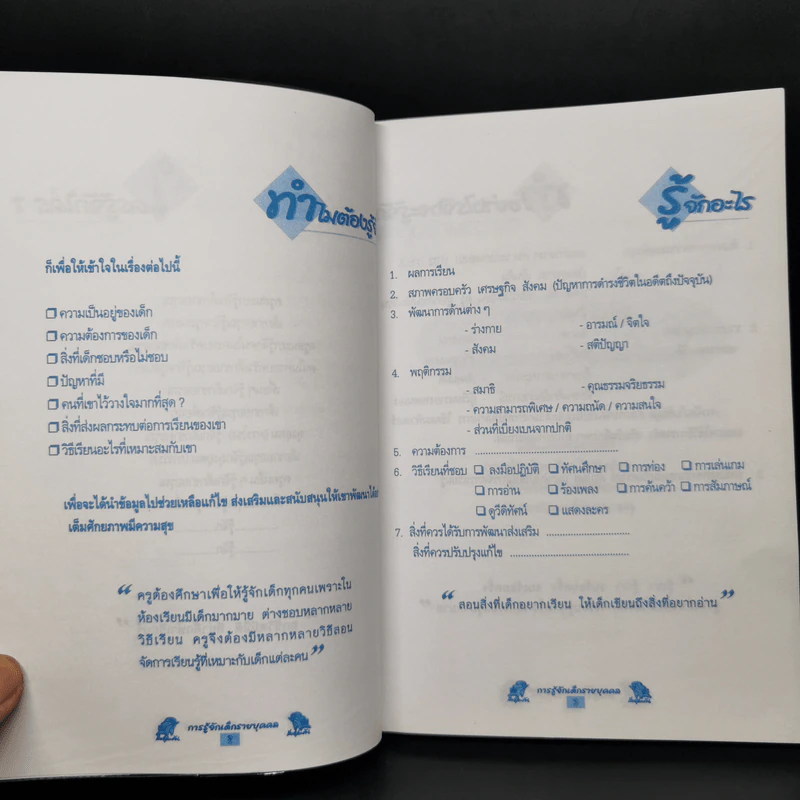 ทำไมต้องรู้จั
ก็เพื่อให้เข้าใจในเรื่องต่อไปนี้
❒ ความเป็นอยู่ของเด็ก
❒ ความต้องการของเด็ก
❒ สิ่งที่เด็กชอบหรือไม่ชอบ
❒ ปัญหาที่มี
❒ คนที่เขาไว้วางใจมากที่สุด ?
❒ สิ่งที่ส่งผลกระทบต่อการเรียนของเขา
❒ วิธีเรียนอะไรที่เหมาะสมกับเขา
เพื่อจะได้นำข้อมูลไปช่วยเหลือแก้ไข ส่งเสริมและสนับสนุนให้เขาพัฒนาได้
เต็มศักยภาพมีความสุข
“ ครูต้องศึกษาเพื่อให้รู้จักเด็กทุกคนเพราะใน
ห้องเรียนมีเด็กมากมาย ต่างชอบหลากหลาย
วิธีเรียน ครูจึงต้องมีหลากหลายวิธีสอน
จัดการเรียนรู้ที่เหมาะกับเด็กแต่ละคน ”
การรู้จักเด็กรายบุคคล
รู้จักอะไร
1. ผลการเรียน
2. สภาพครอบครัว เศรษฐกิจ สังคม (ปัญหาการดำรงชีวิตในอดีตถึงปัจจุบัน)
3. พัฒนาการด้านต่าง ๆ
- ร่างกาย - อารมณ์ / จิตใจ
- สังคม - สติปัญญา
4. พฤติกรรม
- สมาธิ - คุณธรรมจริยธรรม
- ความสามารถพิเศษ / ความถนัด / ความสนใจ
- ส่วนที่เบี่ยงเบนจากปกติ
5. ความต้องการ ............................................
6. วิธีเรียนที่ชอบ ❒ ลงมือปฏิบัติ ❒ ทัศนศึกษา ❒ การท่อง ❒ การเล่นเกม
❒ การอ่าน ❒ ร้องเพลง ❒ การค้นคว้า ❒ การสัมภาษณ์
❒ ดูวีดิทัศน์ ❒ แสดงละคร
7. สิ่งที่ควรได้รับการพัฒนาส่งเสริม .........................
สิ่งที่ควรปรับปรุงแก้ไข ....................................
“ สอนสิ่งที่เด็กอยากเรียน ให้เด็กเขียนถึงสิ่งที่อยากอ่าน ”
การรู้จักเด็กรายบุคคล